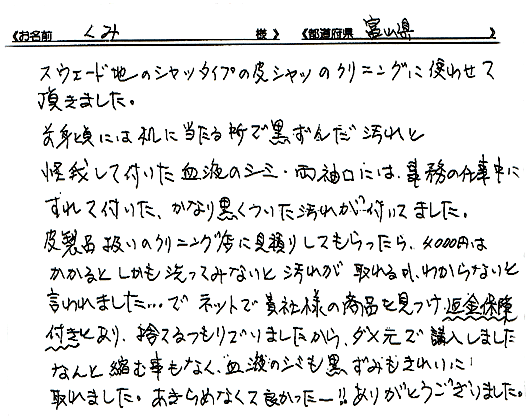 《お名前 くみ 様》 《都道府県 富山県 》
スウェード地のシャツタイプの皮シャツのクリニングに使わせて
頂きました。
前身頃には机に当たる所で黒ずんだ汚れと
怪我して付いた血液のシミ・両袖口には、事務の仕事中に
すれて付いた、かなり黒くついた汚れが付いてました。
皮製品扱いのクリーニング店に見積りしてもらったら、4000円は
かかるとしかも洗ってみないと汚れが取れるか、わからないと
言われました…で ネットで貴社様の商品を見つけ、返金保障
付きとあり、捨てるつもりでいましたから、ダメ元で購入しました
なんと縮む事もなく、血液のシミも黒ずみもきれいに
取れました。あきらめなくて良かったー!!ありがとうございました。